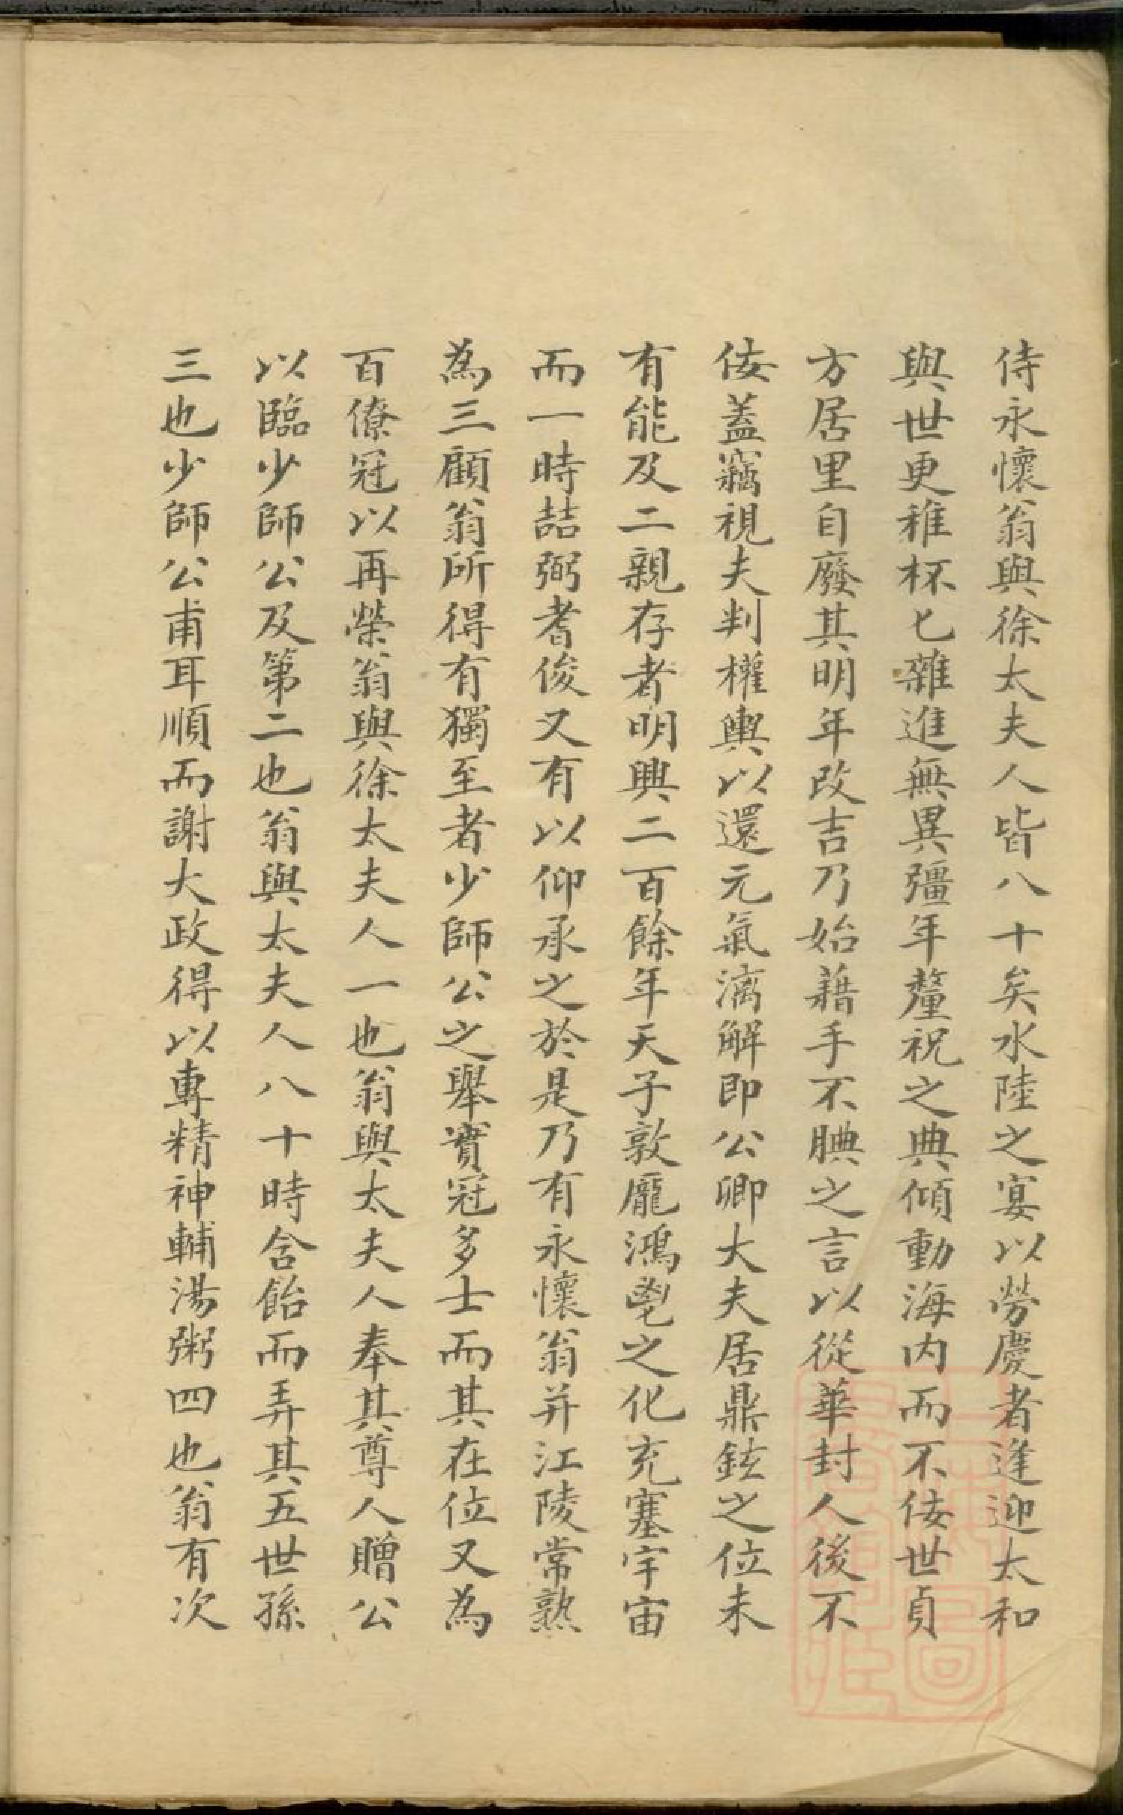 侍永懷翁與徐太夫人皆八十矣水陸之宴以勞慶者逢迎太和
與世更稚杯匕雜進無異彊年釐祝之典傾動海内而不佞世貞
方居里自廢其明年改吉乃始藉手不腆之言以從華封人後不
佞蓋竊視夫判權輿以還元氣漓解即公卿大夫居鼎鉉之位未
有能及二親存者明興二百餘年天子敦龐鴻鬯之化充塞宇宙
而一時喆弼耆俊又有以仰承之於是乃有永懷翁并江陵常熟
為三顧翁所得有獨至者少師公之舉實冠多士而其在位又為
百僚冠以再榮翁與徐太夫人一也翁與太夫人奉其尊人贈公
以臨少師公及第二也翁與太夫人八十時含飴而弄其五世孫
三也少師公甫耳順而謝大政得以專精神輔湯粥四也翁有次